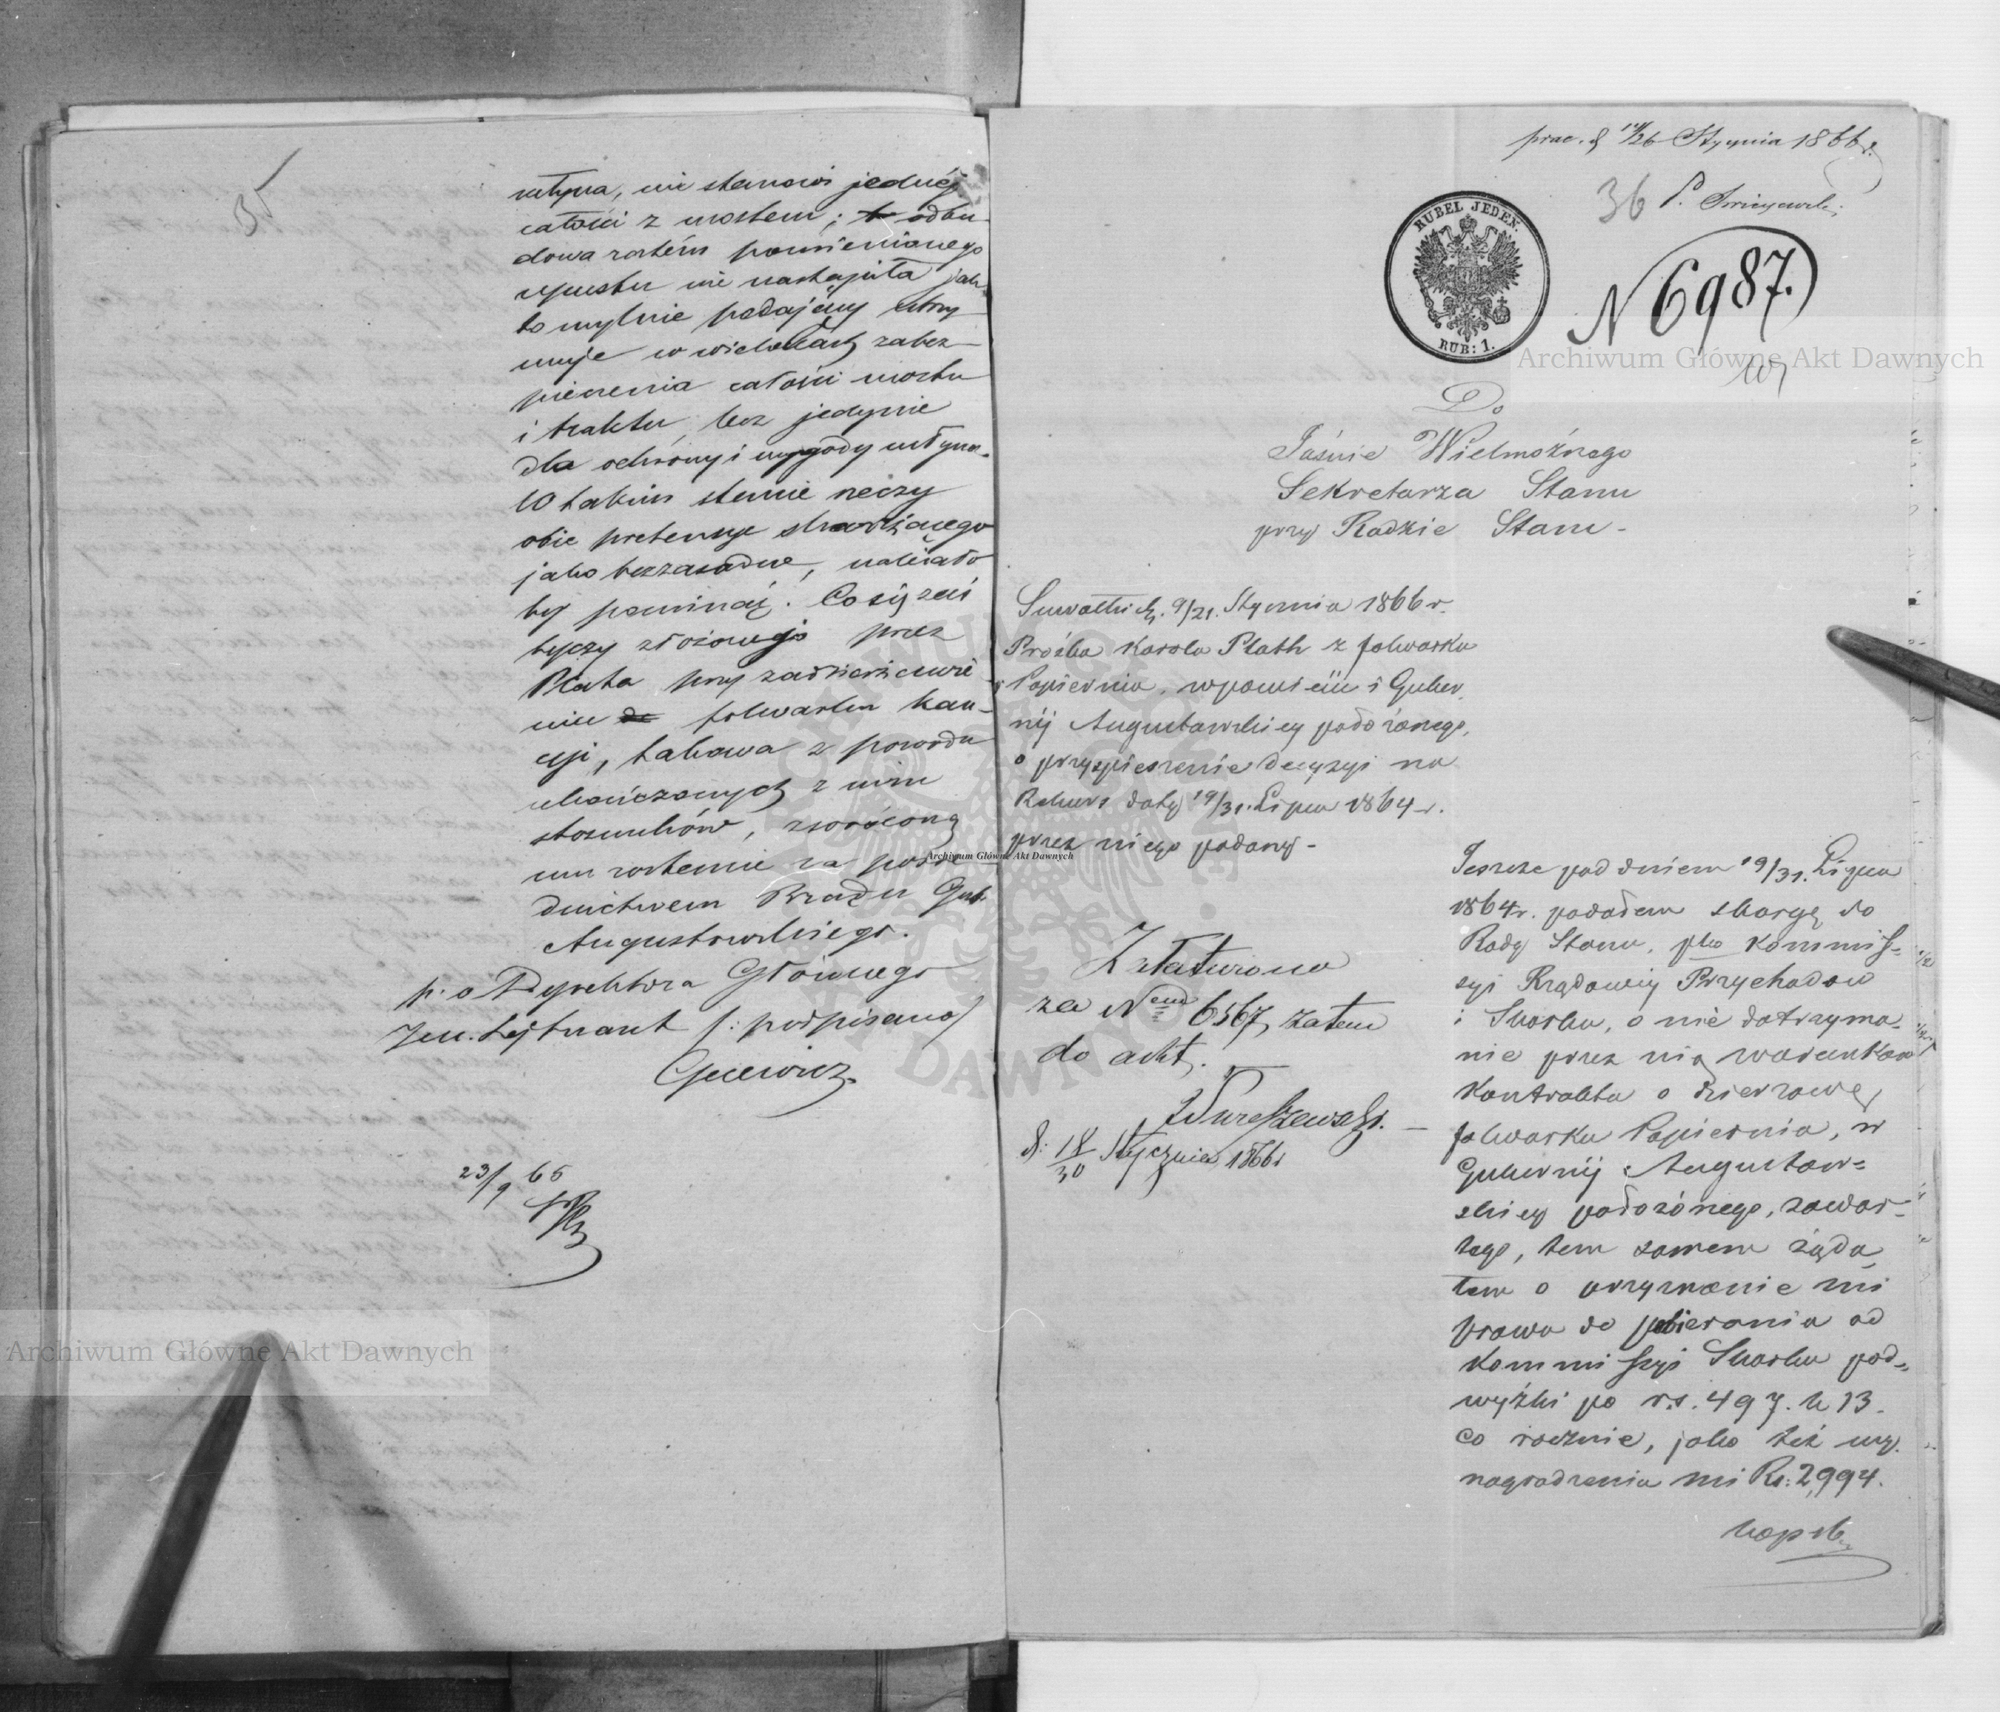 35
młyna, nie stanowi jednéj
całości z mostem; odbu-
dowa zatém pomienionego
upustu nie nastąpiła jak
to mylnie podający utrzy
muje w widokach zabez-
pieczenia całości mostu
i traktu, lecz jedynie
dla ochrony i wygody młyna.
W takim stanie rzeczy
obie pretensye skarżącego
jako bezzasadne, należało
by pominąć. Co się zaś
tyczy złożonego przez
Plata przy zadzierżawie
niu folwarku kau-
cyi, takowa z powodu
ukończonych z nim
stosunków, zwróconą
mu zostanie za pośre
dnictwem Rządu Gub.
Augustowskiego.
p. o Dyrektora Głównego
Jen. Lejtnant /: podpisano/
Gecewicz.
23/9 65
prac. d 14/26 Stycznia 1866 r.
36
RUBEL JEDEN.
RUB: 1.
N 6987.
Do
Jaśnie Wielmożnego
Sekretarza Stanu
przy Radzie Stanu -
Suwałki d. 9/21. Stycznia 1866 r.
Prośba Karola Plath z folwarku
Papiernia, w powiecie i Guber
nij Augustowskiey położonego,
o przyspieszenie decyzyi na
Rekurs daty 19/31. Lipca 1864 r.
przez niego podany -
Załatwiono
za Nem 6567, zatem
do akt.
d. 18/30 Stycznia 1866 r
Jeszcze pod dniem 19/31. Lipca
1864 r. podałem skargę do
Rady Stanu, pko Kommis-
syi Rządowey Przychodów
i Skarbu, o nie dotrzyma-
nie przez nią warunków
Kontraktu o dzierżawę
folwarku Papiernia, w
Gubernij Augustow-
skiey położonego, zawar-
tego, tem samem żąda
łem o przyznanie mi
prawa do pobierania od
Kommissyi Skarbu pod-
wyżki po r.s. 497. k 13.
co rocznie, jako też wy.
nagrodzenia mi Rs: 2,994.
kopek
Archiwum Główne Akt Dawnych
Archiwum Główne Akt Dawnych
Archiwum Główne Akt Dawnych